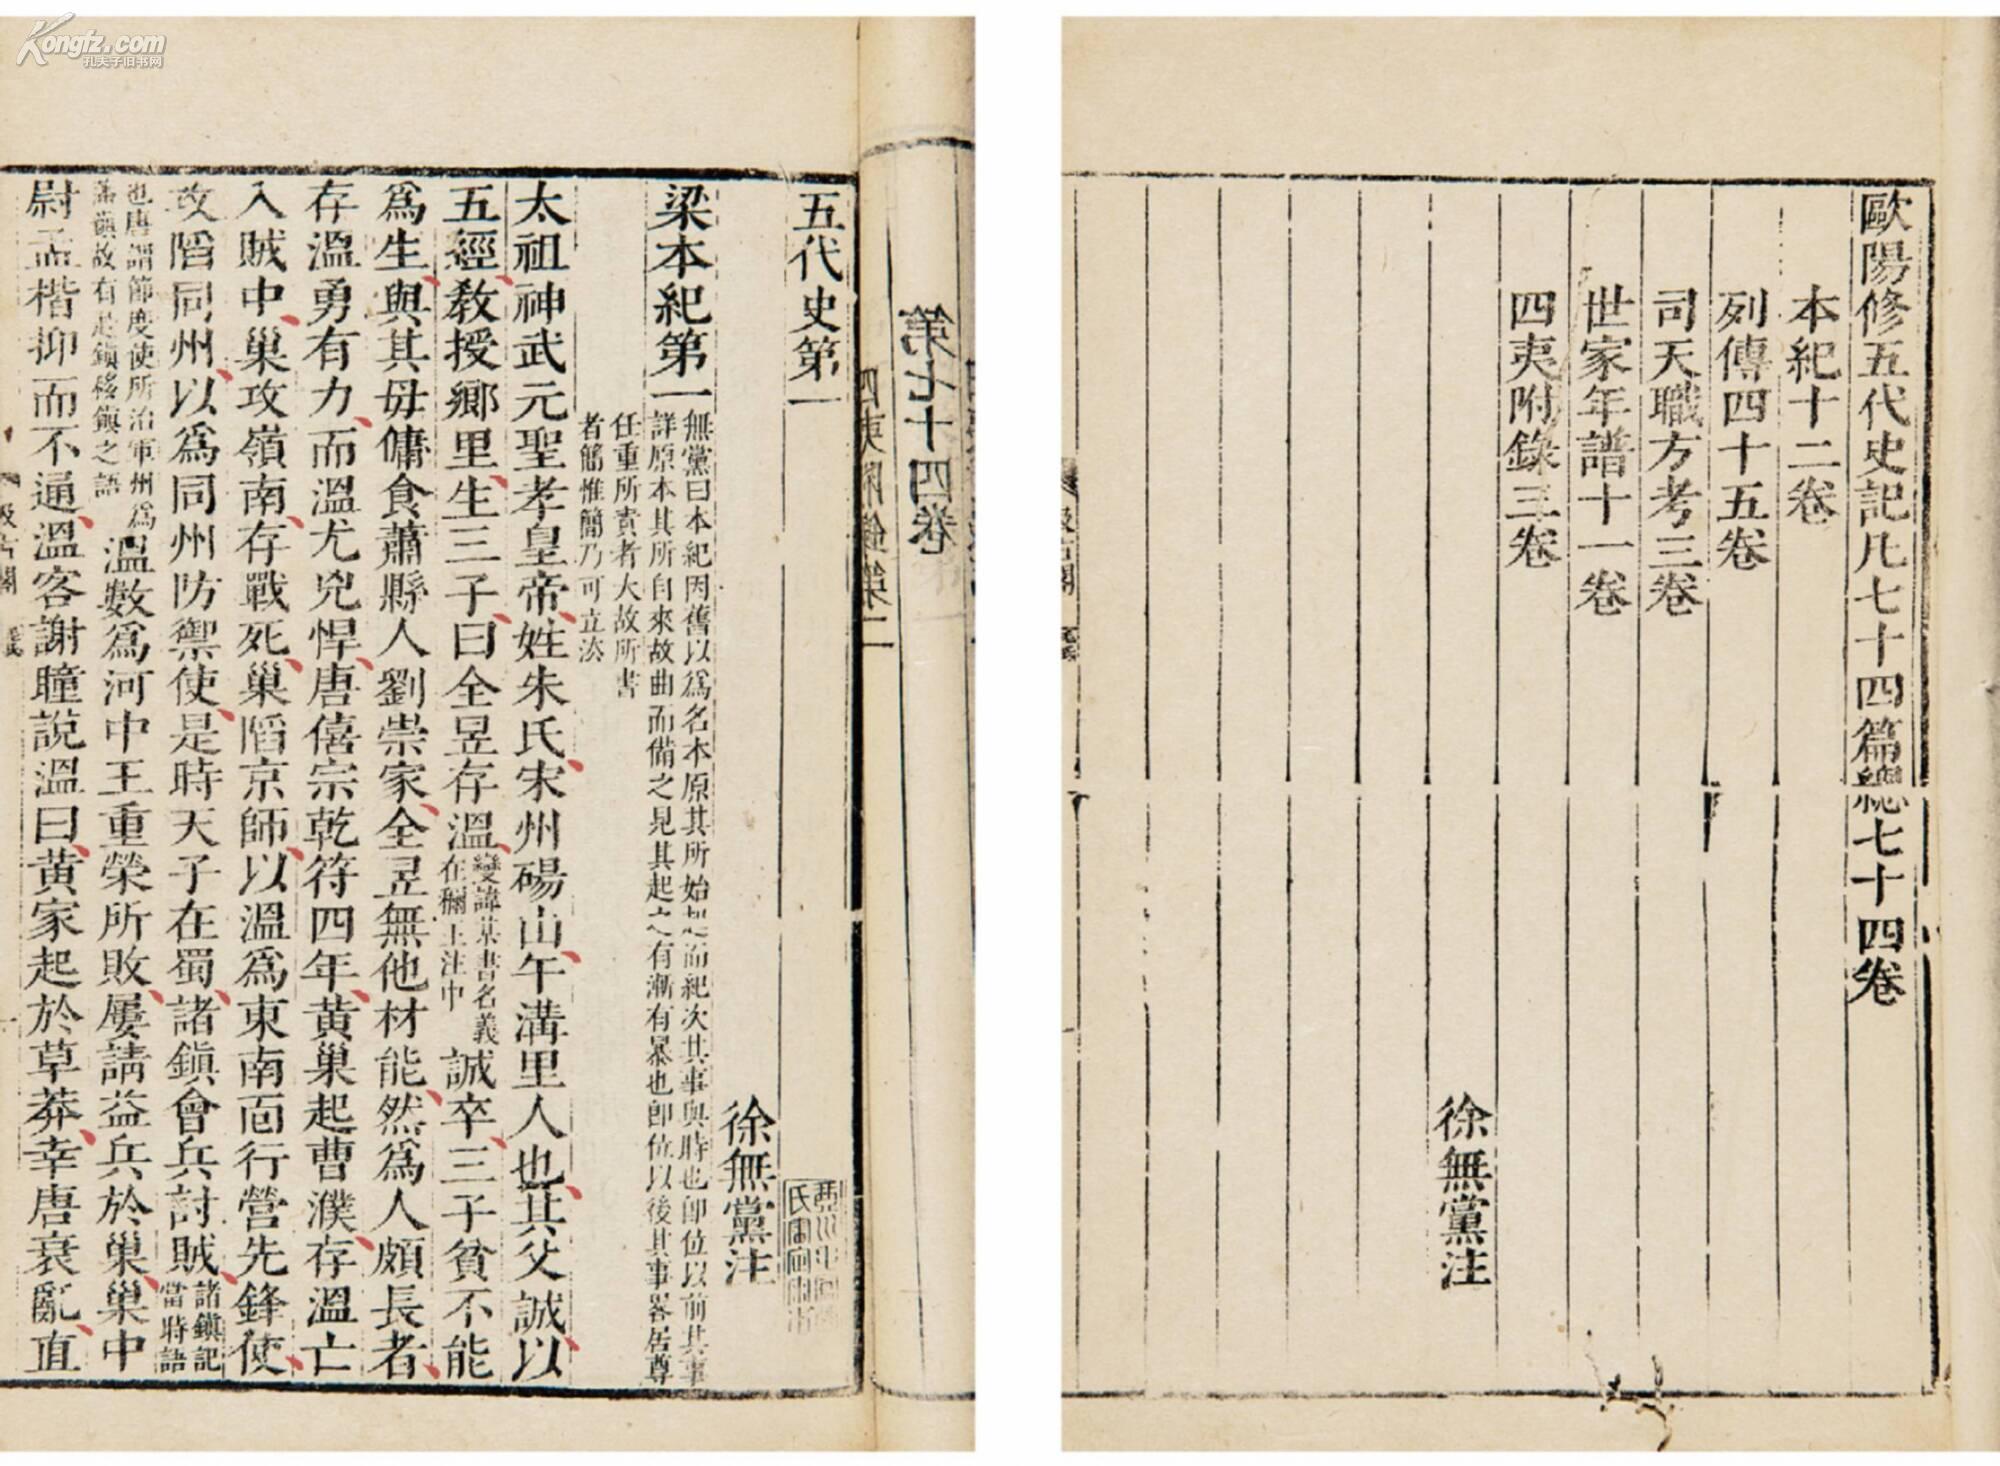 歐陽修五代史記凡七十四篇總七十四卷
本紀十二卷
列傳四十五卷
司天職方考三卷
世家年譜十一卷
四夷附錄三卷
徐無黨注
汲古閣
第七十四卷
四夷附錄第二
五代史第一
徐無黨注
梁本紀第一
無黨曰本紀因舊以爲名本原其所始起而紀次其事與時也卽位以前其事
詳原本其所自來故曲而備之見其起之有漸有暴也卽位以後其事畧居尊
任重所責者大故所書
者簡惟簡乃可立法
太祖神武元聖孝皇帝姓朱氏宋州碭山午溝里人也其父誠以
五經教授鄉里生三子曰全昱存溫
變諱某書名義
在稱王注中
誠卒三子貧不能
爲生與其母傭食蕭縣人劉崇家全昱無他材能然爲人頗長者
存溫勇有力而溫尤兇悍唐僖宗乾符四年黃巢起曹濮存溫亡
入賊中巢攻嶺南存戰死巢陷京師以溫爲東南面行營先鋒使
攻陷同州以爲同州防禦使是時天子在蜀諸鎮會兵討賊
諸鎮記
當時語
也唐謂節度使所治軍州爲
藩鎮故有赴鎮移鎮之語
溫數爲河中王重榮所敗屢請益兵於巢巢中
尉孟楷抑而不通溫客謝瞳說溫曰黃家起於草莽幸唐衰亂直
汲古閣
Kongfz.com
孔夫子旧书网